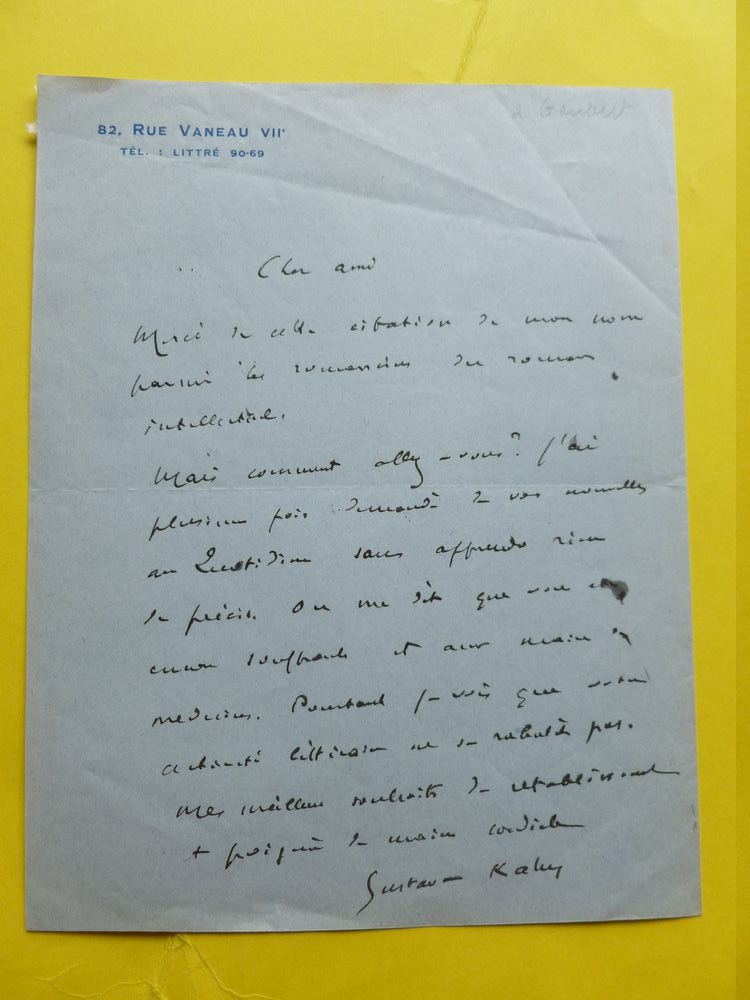 à Gaubert
82, RUE VANEAU VIIᵉ
TÉL. : LITTRÉ 90-69
Cher ami
Merci de cette citation de mon nom
parmi les romanciers du roman
intellectuel.
Mais comment allez-vous? J'ai
plusieurs fois demandé de vos nouvelles
au Quotidien sans apprendre rien
de précis. On me dit que vous êtes
encore souffrant et aux mains de
médecins. Pourtant je vois que votre
activité littéraire ne se ralentit pas.
Mes meilleurs souhaits de rétablissement
et poignée de main cordiale
Gustave Kahn